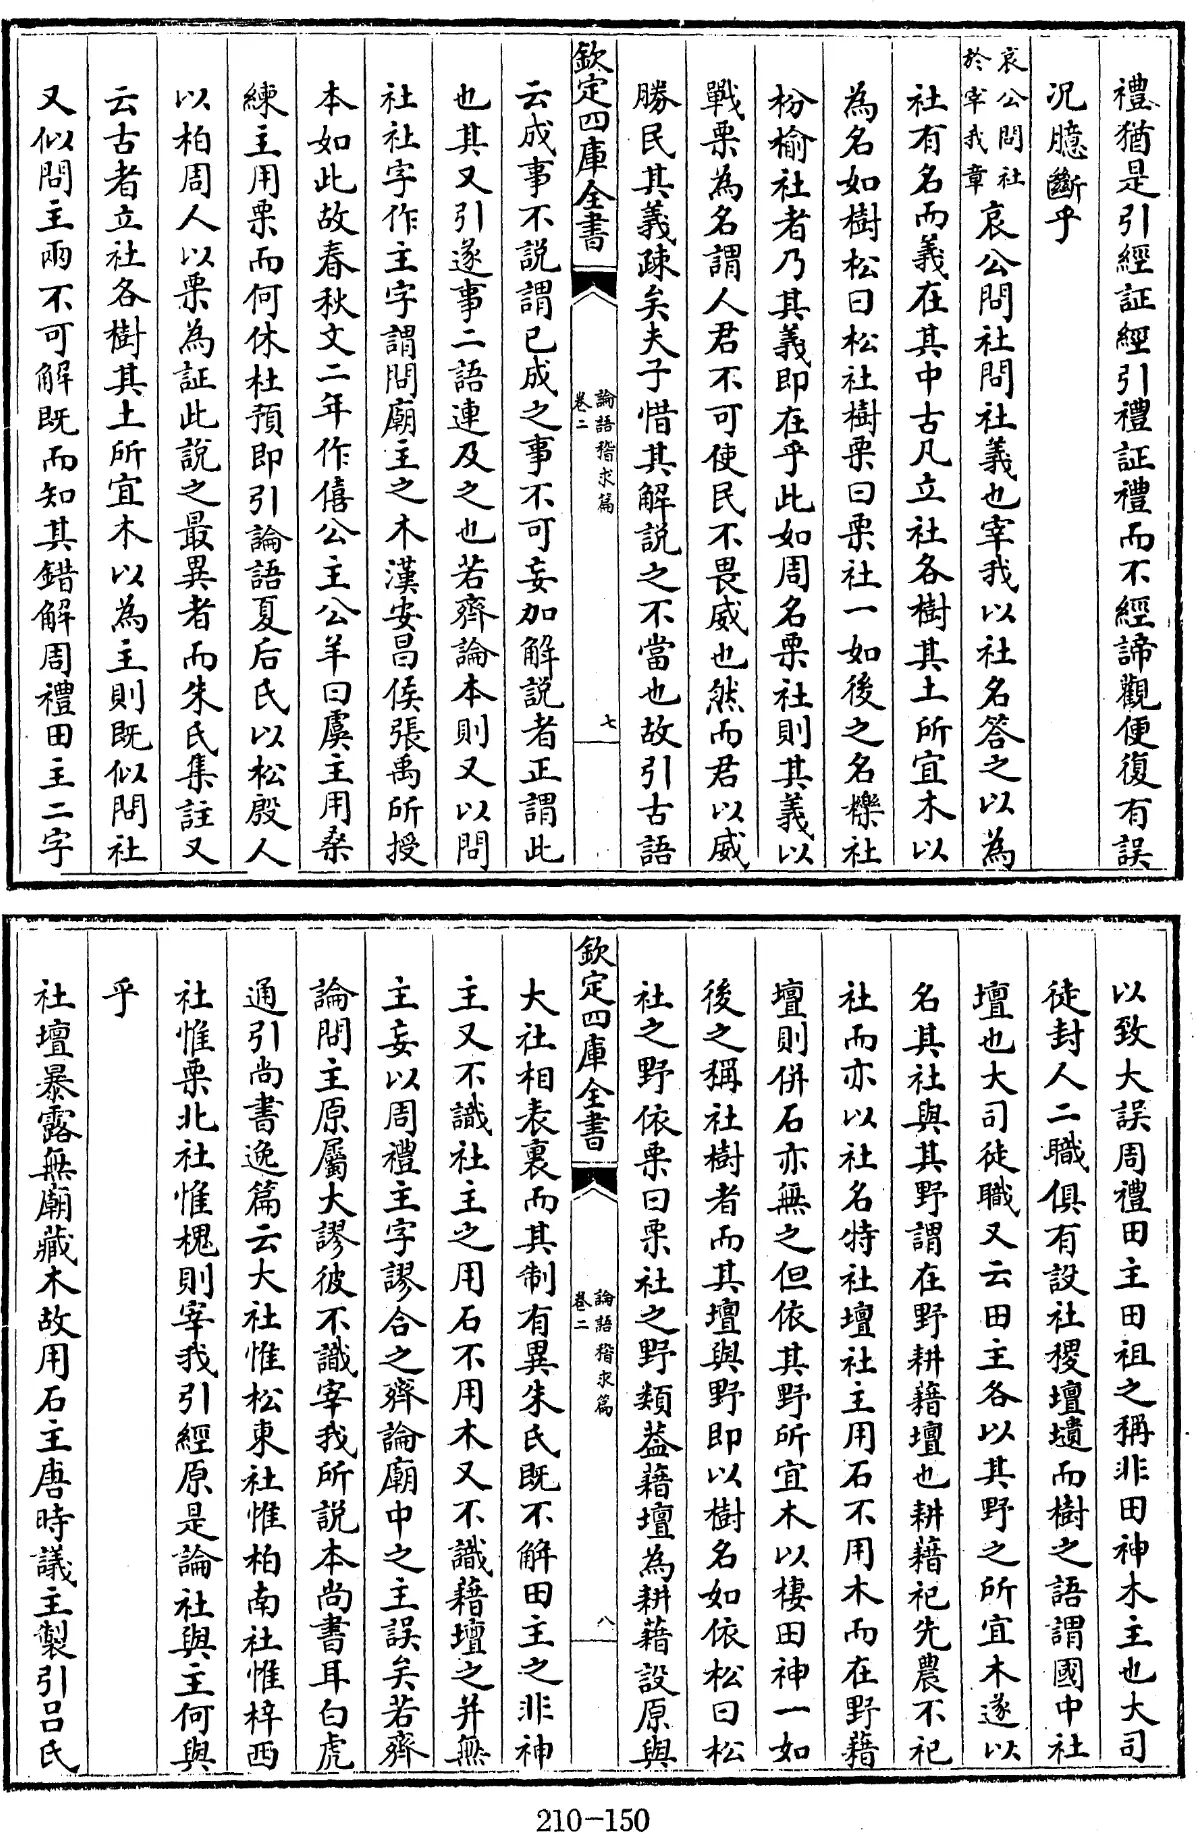 禮猶是引經証經引禮証禮而不經諦觀便復有誤
況臆斷乎
哀公問社
於宰我章
哀公問社問社義也宰我以社名答之以為
社有名而義在其中古凡立社各樹其土所宜木以
為名如樹松曰松社樹栗曰栗社一如後之名櫟社
枌榆社者乃其義即在乎此如周名栗社則其義以
戰栗為名謂人君不可使民不畏威也然而君以威
勝民其義疎矣夫子惜其解說之不當也故引古語
欽定四庫全書
論語稽求篇
卷二
七
云成事不説謂已成之事不可妄加解説者正謂此
也其又引遂事二語連及之也若齊論本則又以問
社社字作主字謂問廟主之木漢安昌侯張禹所授
本如此故春秋文二年作僖公主公羊曰虞主用桑
練主用栗而何休杜預即引論語夏后氏以松殷人
以柏周人以栗為証此説之最異者而朱氏集註又
云古者立社各樹其土所宜木以為主則既似問社
又似問主兩不可解既而知其錯解周禮田主二字
以致大誤周禮田主田祖之稱非田神木主也大司
徒封人二職俱有設社稷壇壝而樹之語謂國中社
壇也大司徒職又云田主各以其野之所宜木遂以
名其社與其野謂在野耕藉壇也耕藉祀先農不祀
社而亦以社名特社壇社主用石不用木而在野藉
壇則併石亦無之但依其野所宜木以棲田神一如
後之稱社樹者而其壇與野即以樹名如依松曰松
社之野依栗曰栗社之野類葢藉壇為耕藉設原與
欽定四庫全書
論語稽求篇
卷二
八
大社相表裏而其制有異朱氏既不解田主之非神
主又不識社主之用石不用木又不識藉壇之并無
主妄以周禮主字謬合之齊論廟中之主誤矣若齊
論問主原屬大謬彼不識宰我所説本尚書耳白虎
通引尚書逸篇云大社惟松東社惟柏南社惟梓西
社惟栗北社惟槐則宰我引經原是論社與主何與
乎
社壇暴露無廟藏木故用石主唐時議主製引吕氏
210-150